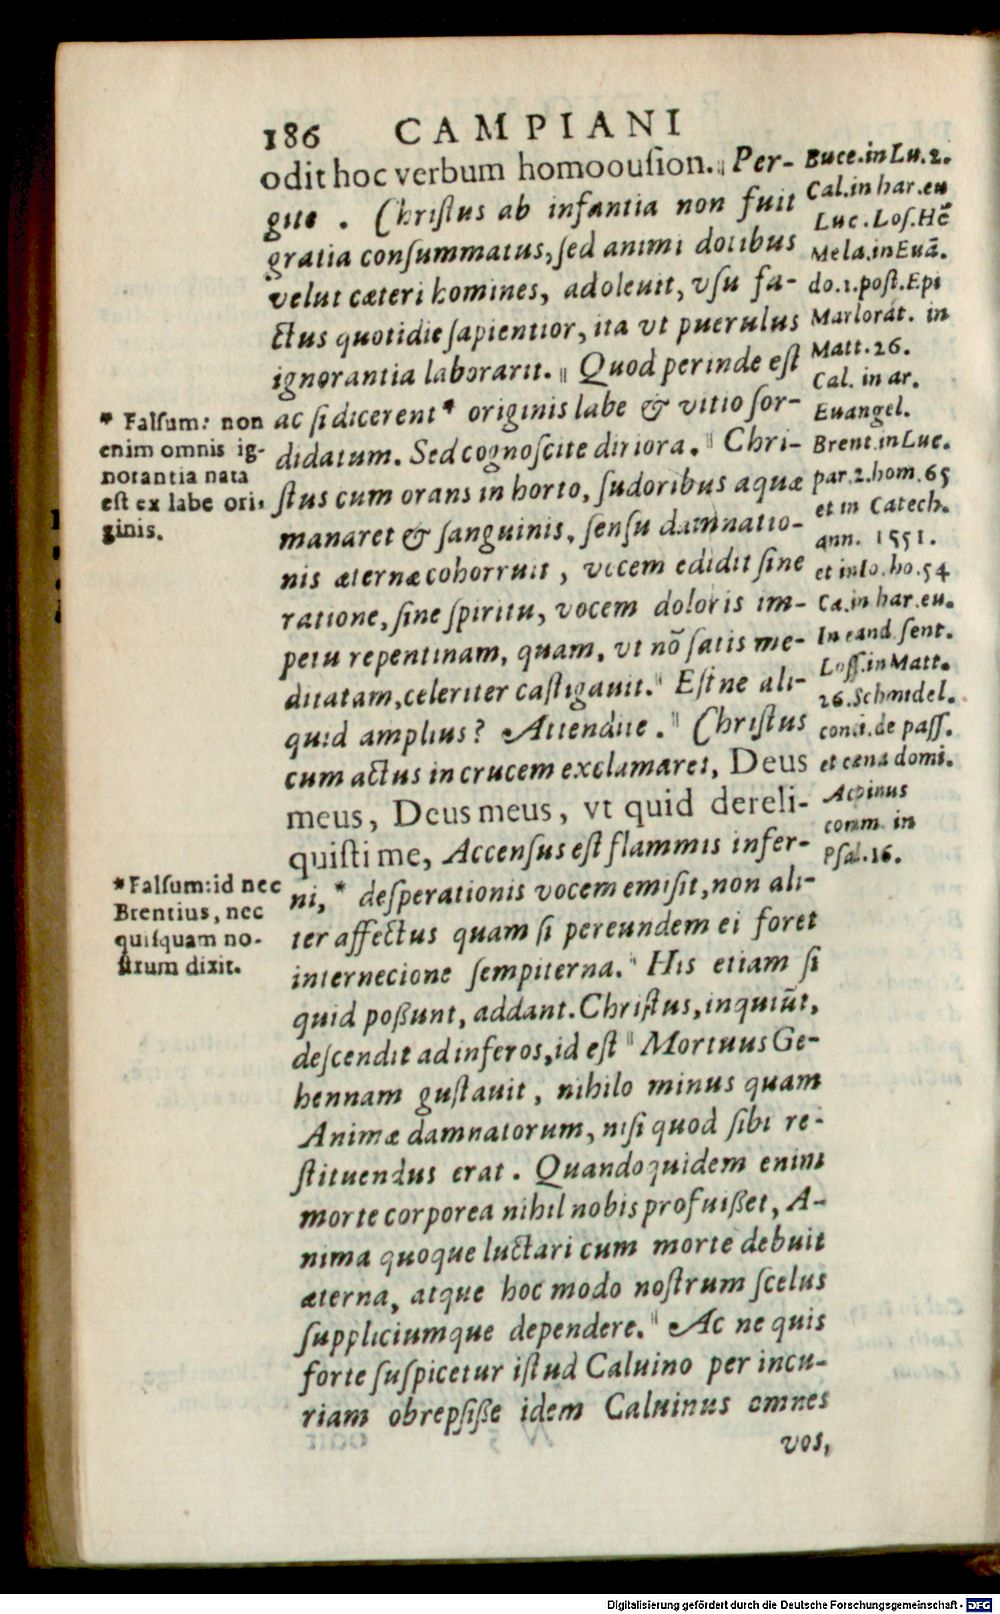 186 CAMPIANI
odit hoc verbum homoouſion. || Per-
gite . Chriſtus ab infantia non fuit
gratia conſummatus, ſed animi dotibus
velut cæteri homines, adoleuit, vſu fa-
ctus quotidie ſapientior, ita vt puerulus
ignorantia laborarit. || Quod perinde eſt
ac ſi dicerent * originis labe & vitio ſor-
didatum. Sed cognoſcite diriora. || Chri-
ſtus cum orans in horto, ſudoribus aquæ
manaret & ſanguinis, ſenſu damnatio-
nis æternæ cohorruit, vocem edidit ſine
ratione, ſine ſpiritu, vocem doloris im-
petu repentinam, quam, vt nõ ſatis me-
ditatam, celeriter caſtigauit. || Eſt ne ali-
quid amplius? Attendite . || Chriſtus
cum actus in crucem exclamaret, Deus
meus, Deus meus, vt quid dereli-
quiſti me, Accenſus eſt flammis infer-
ni, * deſperationis vocem emiſit, non ali-
ter affectus quam ſi pereundem ei foret
internecione ſempiterna. || His etiam ſi
quid poßunt, addant. Chriſtus, inquiũt,
deſcendit ad inferos, id eſt || Mortuus Ge-
hennam guſtauit, nihilo minus quam
Animæ damnatorum, niſi quod ſibi re-
ſtituendus erat. Quandoquidem enim
morte corporea nihil nobis profuißet, A-
nima quoque luctari cum morte debuit
æterna, atque hoc modo noſtrum ſcelus
ſuppliciumque dependere. || Ac ne quis
forte ſuſpicetur iſtud Caluino per incu-
riam obrepſiße idem Caluinus omnes
vos,
* Falſum: non
enim omnis ig-
norantia nata
eſt ex labe ori-
ginis.
* Falſum: id nec
Brentius, nec
quiſquam no-
ſtrum dixit.
Buce. in Lu. 2.
Cal. in har. eu
Luc. Loſ. Hẽ
Mela. in Euã.
do. 1. poſt. Epi
Marlorat. in
Matt. 26.
Cal. in ar.
Euangel.
Brent. in Luc.
par. 2. hom. 65
et in Catech.
ann. 1551.
et in Io. ho. 54
Ca. in har. eu.
In eand. ſent.
Loſſ. in Matt.
26. Schmidel.
conci. de paſſ.
et cæna domi.
Aepinus
comm. in
Pſal. 16.
Digitalisierung gefördert durch die Deutsche Forschungsgemeinschaft - DFG